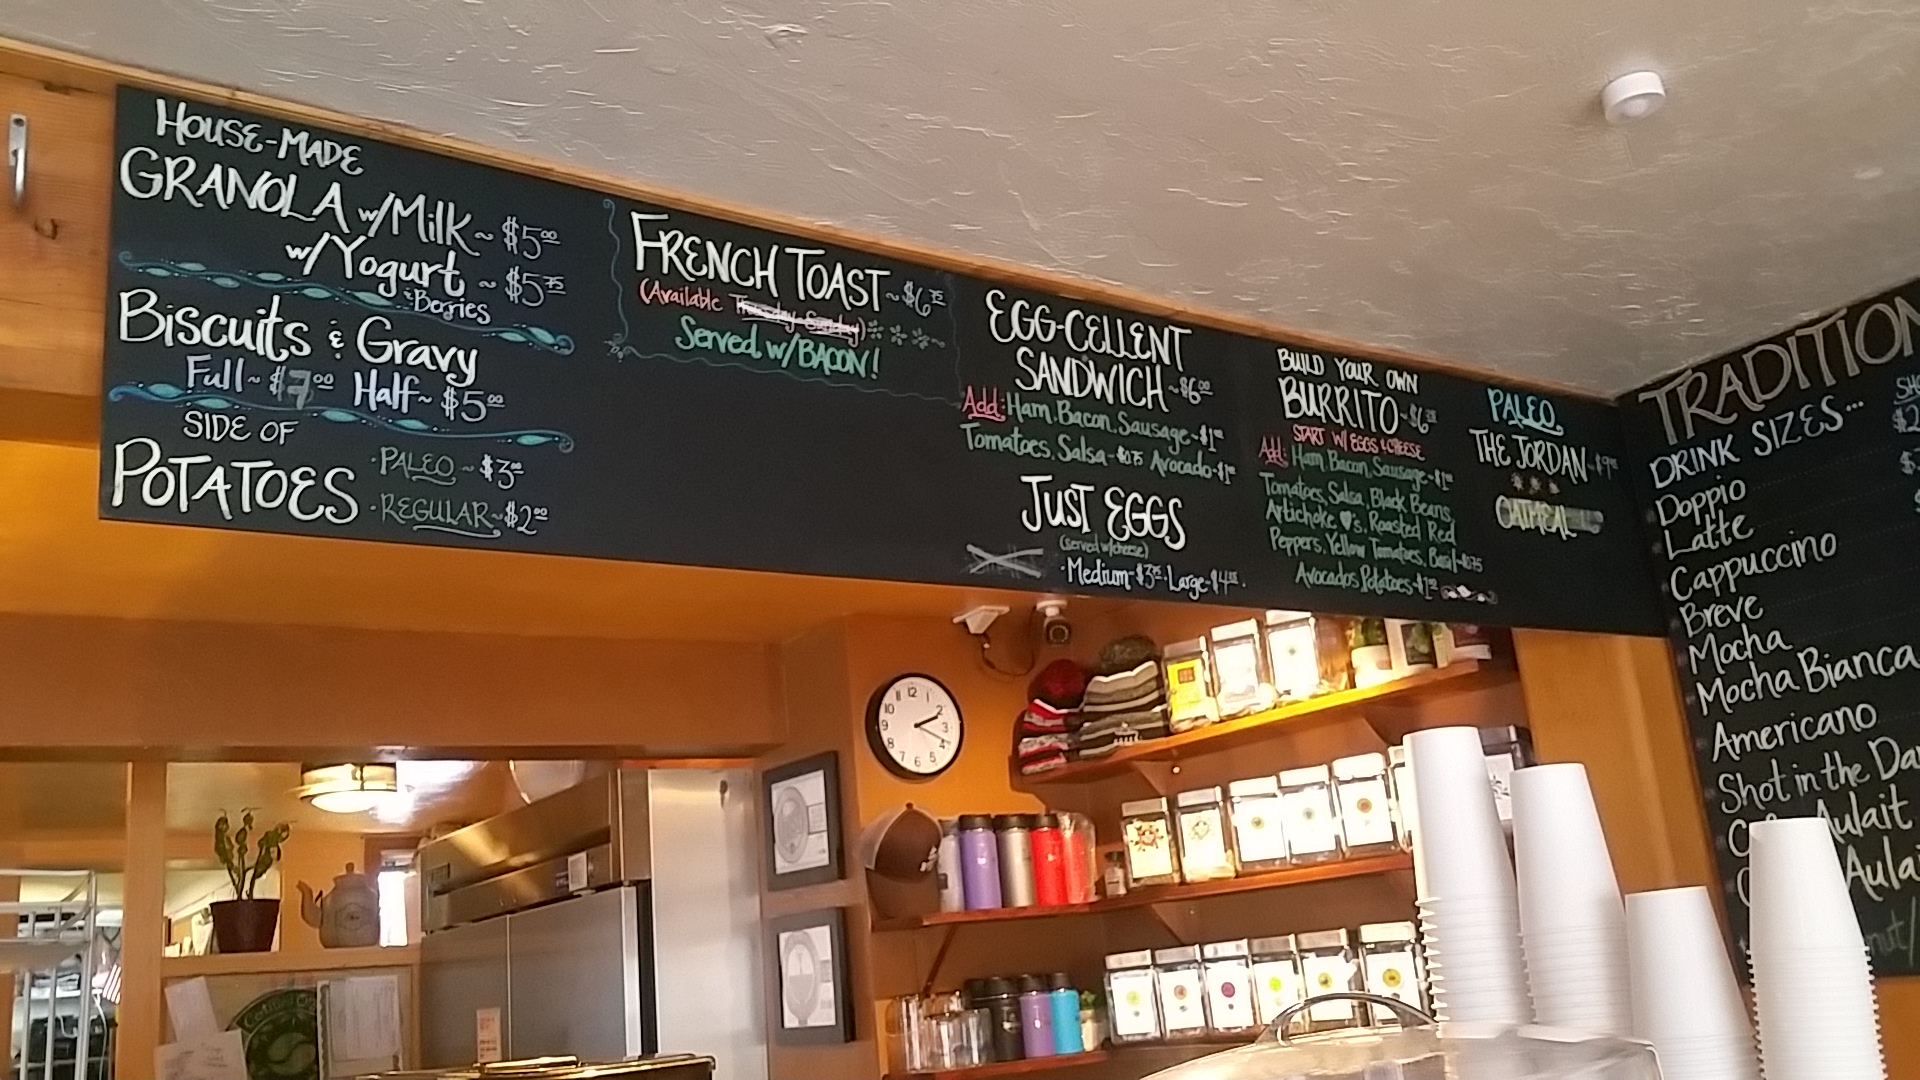 HOUSE-MADE
GRANOLA w/Milk ~ $5⁰⁰
w/Yogurt ~ $5⁷⁵
& Berries
Biscuits & Gravy
Full ~ $7⁰⁰ Half ~ $5⁰⁰
SIDE OF
POTATOES
· PALEO ~ $3⁰⁰
· REGULAR ~ $2⁰⁰
FRENCH TOAST ~ $6⁷⁵
(Available Thursday-Sunday)
Served w/BACON!
EGG-CELLENT
SANDWICH ~ $6⁰⁰
Add: Ham, Bacon, Sausage ~ $1⁰⁰
Tomatoes, Salsa - $0.75 Avocado - $1⁰⁰
JUST EGGS
(served w/cheese)
· Medium - $3⁷⁵ · Large - $4
BUILD YOUR OWN
BURRITO ~ $6
START W/ EGGS & CHEESE
Add: Ham, Bacon, Sausage - $1⁰⁰
Tomatoes, Salsa, Black Beans,
Artichoke ♥'s, Roasted Red
Peppers, Yellow Tomatoes, Basil - $0.75
Avocados Potatoes - $1⁰⁰
PALEO
THE JORDAN - $9
OATMEAL
TRADITION
DRINK SIZES...
Doppio
Latte
Cappuccino
Breve
Mocha
Mocha Bianca
Americano
Shot in the Da
Aulait
Aulai
12 1 2 3 4 5 6 7 8 9 10 11